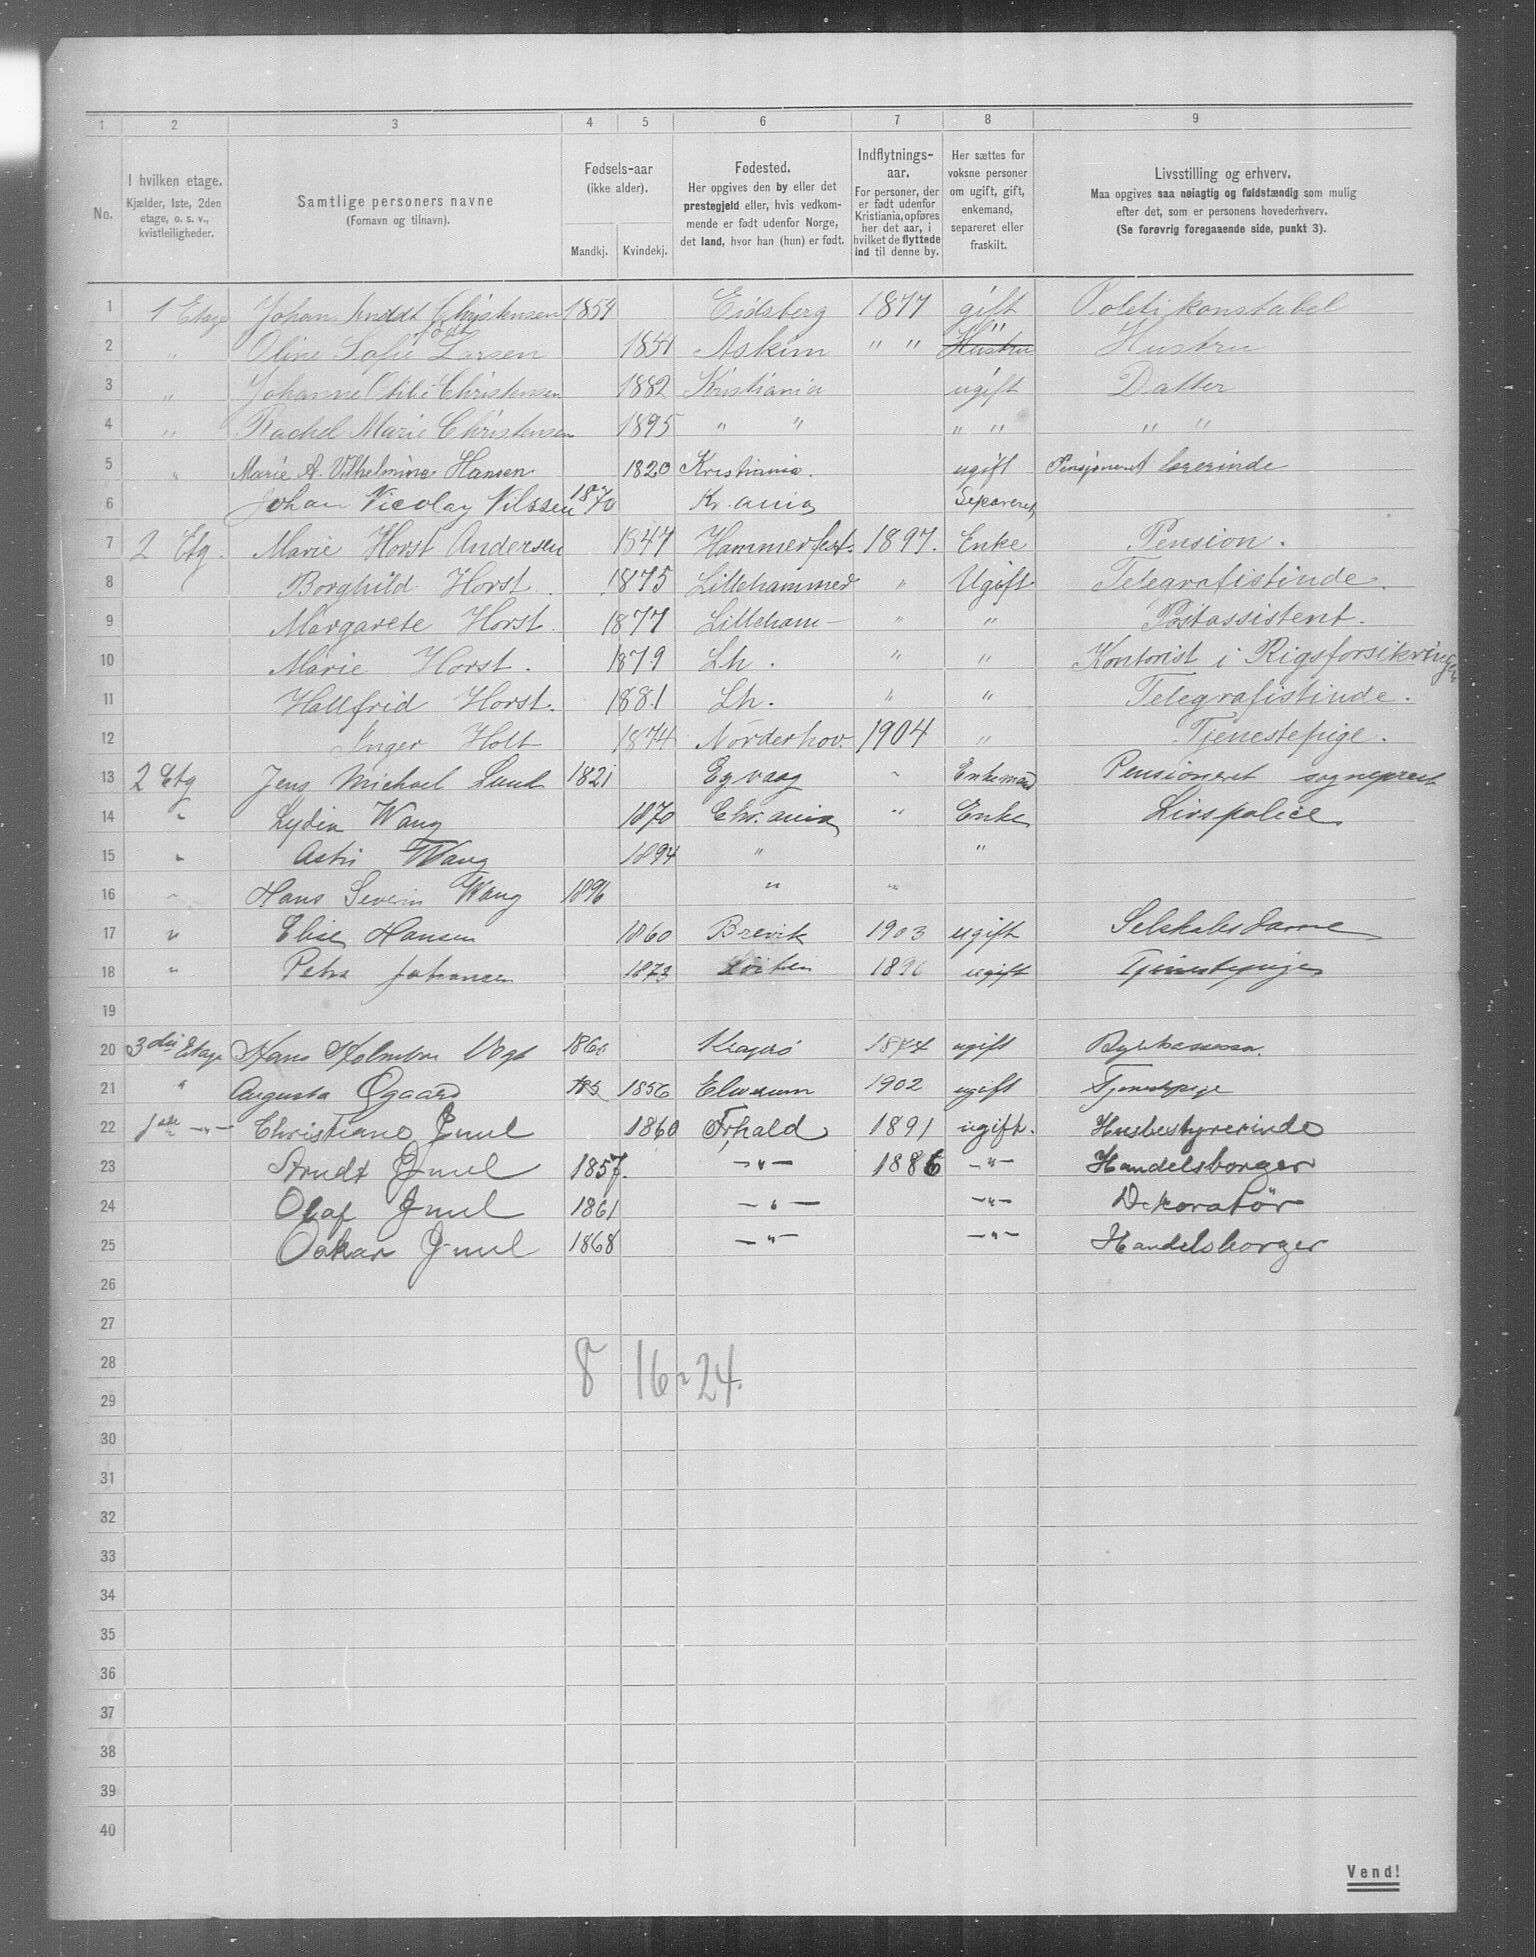 1 2 3 4 5 6 7 8 9
No.
I hvilken etage.
Kjælder, 1ste, 2den
etage, o. s. v.,
kvistleiligheder.
Samtlige personers navne
(Fornavn og tilnavn).
Fødsels-aar
(ikke alder).
Mandkj. Kvindekj.
Fødested.
Her opgives den by eller det
prestegjeld eller, hvis vedkom-
mende er født udenfor Norge,
det land, hvor han (hun) er født.
Indflytnings-
aar.
For personer, der
er født udenfor
Kristiania, opføres
her det aar, i
hvilket de flyttede
ind til denne by.
Her sættes for
voksne personer
om ugift, gift,
enkemand,
separeret eller
fraskilt.
Livsstilling og erhverv.
Maa opgives saa nøiagtig og fuldstændig som mulig
efter det, som er personens hovederhverv.
(Se forøvrig foregaaende side, punkt 3).
1 1 Etage Johan Arnddt Christensen 1854 Eidsberg 1877 gift Politikonstabel
2 " Oline Sofie født Larsen 1851 Askim " " Hustru " Hustru
3 " Johanne Otilie Christensen 1882 Kristiania ugift Datter
4 " Rachel Marie Christensen 1895 " " " " " "
5 " Marie A. Vilhelmine Hansen 1820 Kristiania. ugift Pensjoneret lærerinde
6 Johan Nicolay Nilssen 1870 Kr.ania Separeret
7 2 Etg. Marie Horst Andersen 1847 Hammerfest. 1897. Enke Pension.
8 Borghild Horst. 1875 Lillehammer " Ugift Telegrafistinde.
9 Margarete Horst. 1877 Lilleham- " " Postassistent.
10 Marie Horst. 1879 Lh. " " Kontorist i Rigsforsikringen
11 Hallfrid Horst. 1881 Lh. " " Telegrafistinde.
12 Inger Holt 1874 Norderhov. 1904 " Tjenestepige.
13 2 Etg Jens Michael Lund 1821 Egvaag " Enkemand Pensioneret sogneprest
14 " Lydia Wang 1870 Chr.ania " Enke Livspolice
15 " Astri Wang 1894 " "
16 " Hans Severin Wang 1896 " "
17 " Elise Hansen 1860 Brevik 1903 ugift Selskabsdame
18 " Petra Johansen 1873 Løiten 1896 ugift Tjenestepige
19
20 3die Etage Hans Vogt Kragerø ugift
21 " Augusta Øgaard 185 1856 Elverum 1902 ugift Tjenestepige
22 1ste -"- Christiane Juul 1860 Frhald 1891 ugift. Husbestyrerinde
23 Arndt Juul 1857. -"- 1886 -"- Handelsborger
24 Olaf Juul 1861 -"- -"- Dekoratør
25 Oskar Juul 1868 -"- -"- Handelsborger
26
27
28 8 16 = 24.
29
30
31
32
33
34
35
36
37
38
39
40
Vend!